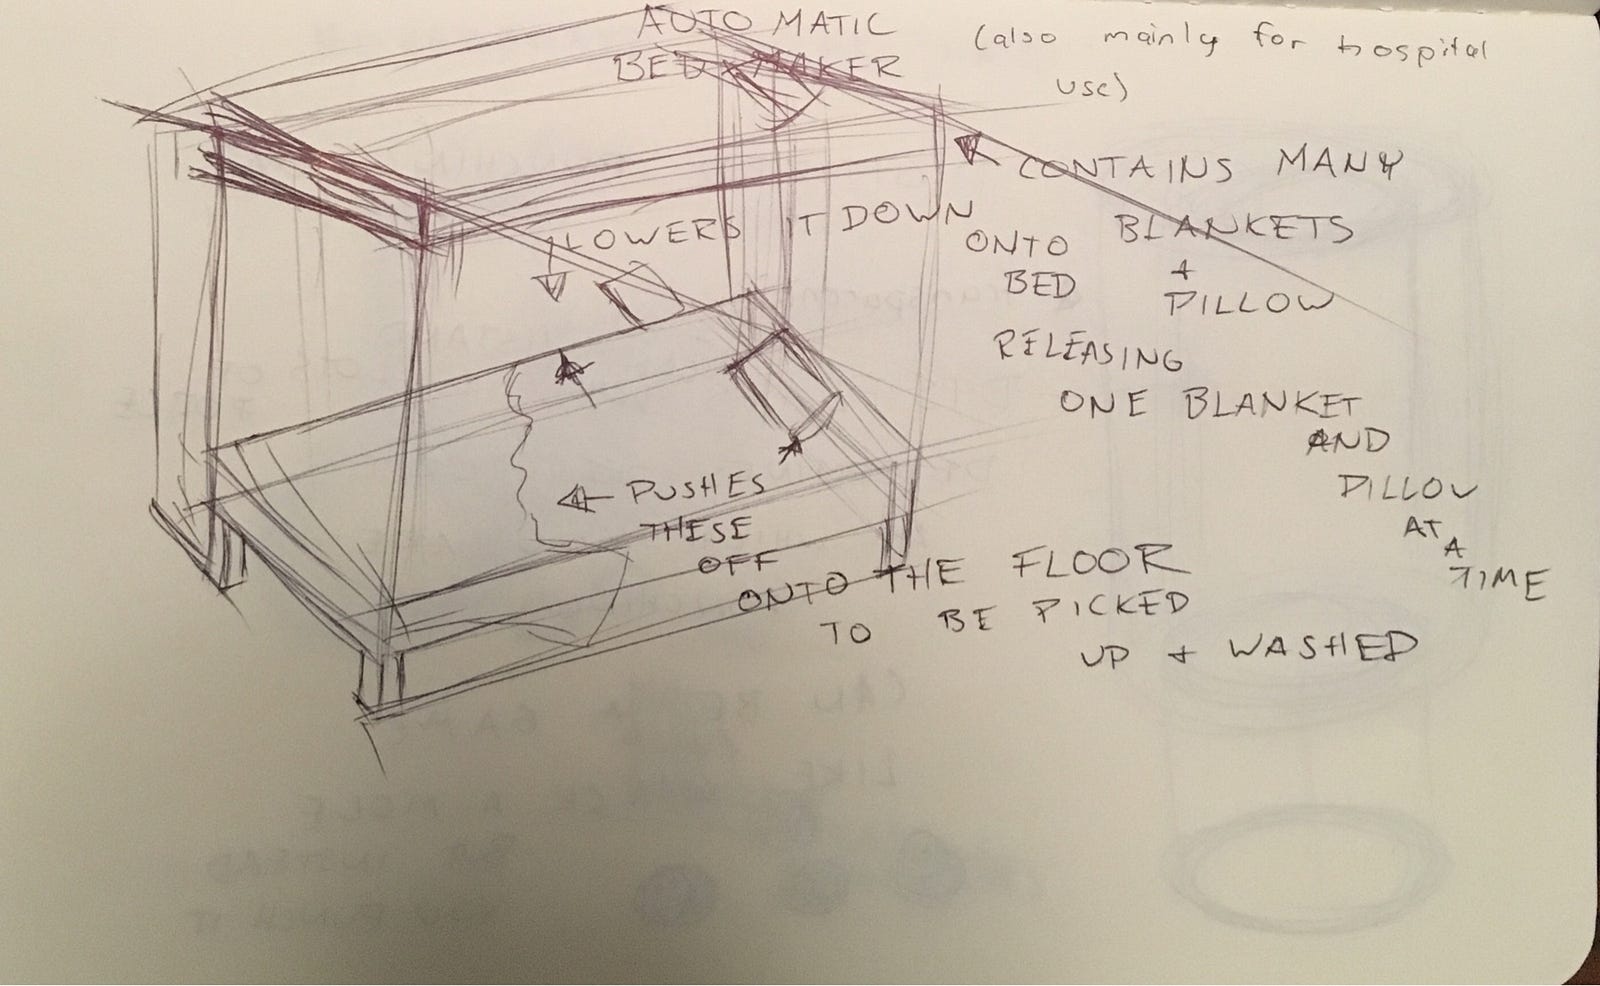 AUTOMATIC
BED MAKER
(also mainly for hospital
use)
CONTAINS MANY
BLANKETS
+
PILLOW
LOWERS IT DOWN
ONTO
BED
RELEASING
ONE BLANKET
AND
PILLOW
AT
A
TIME
PUSHES
THESE
OFF
ONTO THE FLOOR
TO BE PICKED
UP + WASHED